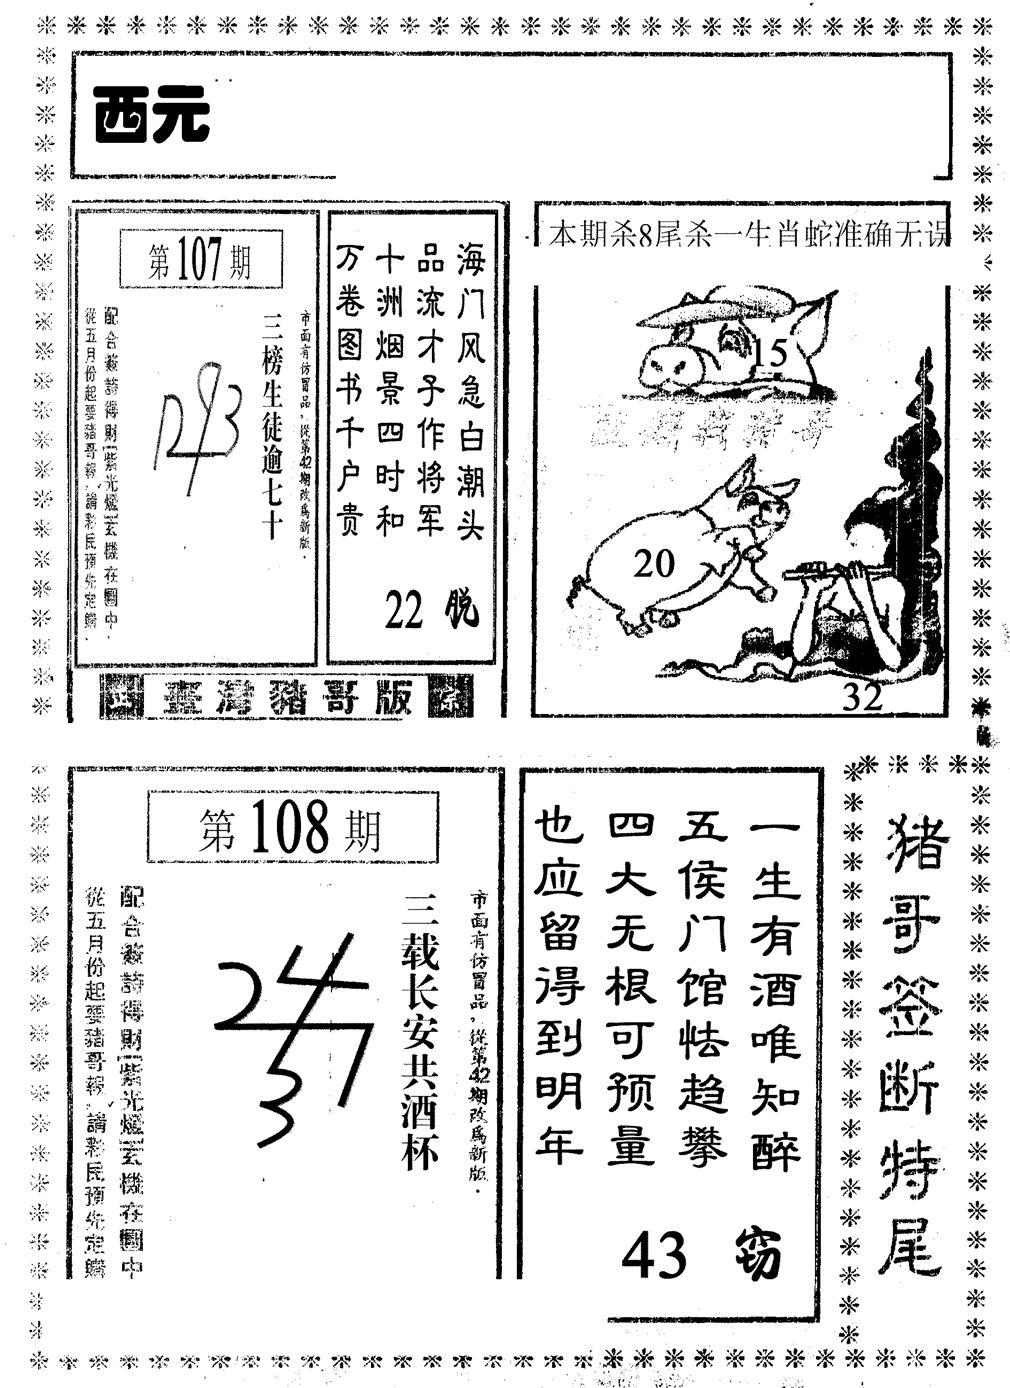 西元
第107期
市面有仿冒品,從第42期改爲新版.
三榜生徒逾七十
配合簽詩得財(紫光燈)玄機在圖中,
從五月份起要豬哥報,請彩民預先定購.
海门风急白潮头
品流才子作将军
十洲烟景四时和
万卷图书千户贵
22 脱
臺灣豬哥版
本期杀8尾杀一生肖蛇准确无误
15
20
32
第108期
市面有仿冒品,從第42期改爲新版.
三载长安共酒杯
24
7
3
配合簽詩得財(紫光燈)玄機在圖中
從五月份起要豬哥報,請彩民預先定購
一生有酒唯知醉
五侯门馆怯趋攀
四大无根可预量
也应留得到明年
43 窃
猪哥签断特尾